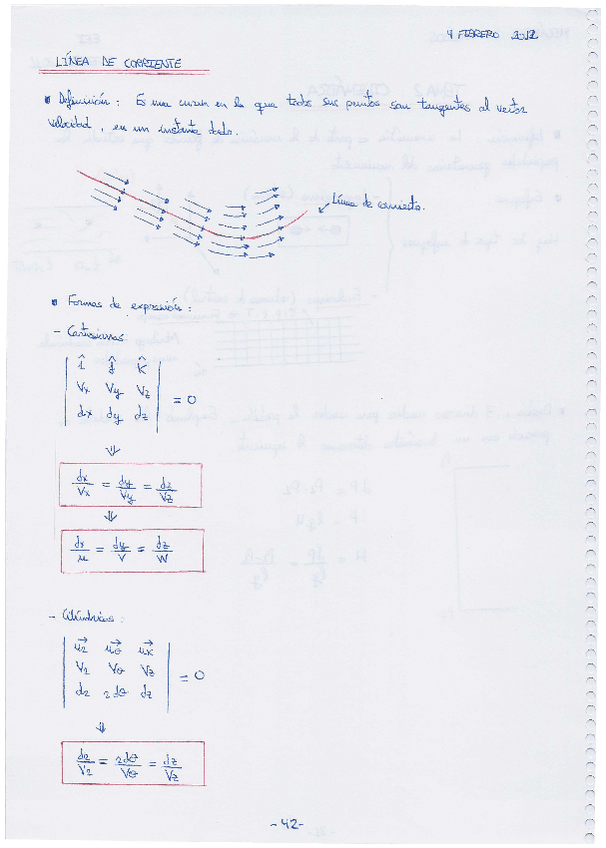 4 FEBRERO 2012
LÍNEA DE CORRIENTE
Definición: Es una curva en la que todos sus puntos son tangentes al vector
velocidad, en un instante dado.
Línea de corriente.
Formas de expresión:
- Cartesianas:
| î ĵ k̂ |
| Vx Vy Vz | = 0
| dx dy dz |
⇓
dx/Vx = dy/Vy = dz/Vz
⇓
dx/u = dy/V = dz/W
- Cilíndricas:
| u⃗r u⃗θ u⃗k |
| Vr Vθ Vz | = 0
| dr rdθ dz |
⇓
dr/Vr = rdθ/Vθ = dz/Vz
-42-